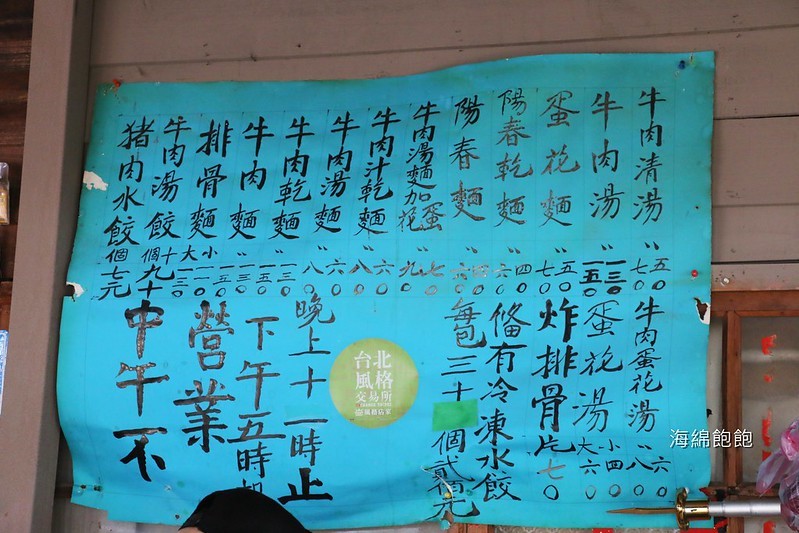 牛肉清湯 〃 五〇 七〇
牛肉湯 〃 一三〇 一五〇
蛋花麵 〃 五〇 七〇
陽春乾麵 〃 四〇 六〇
陽春麵 〃 四〇 六〇
牛肉湯麵加蛋花 〃 七〇 九〇
牛肉汁乾麵 〃 六〇 八〇
牛肉湯麵 〃 六〇 八〇
牛肉乾麵 〃 一三〇
牛肉麵 〃 一三〇 一五〇
排骨麵 小一一〇 大一三〇
牛肉湯餃 十個九十
猪肉水餃 個七元
牛肉蛋花湯 〃 六〇 八〇
蛋花湯 小四〇 大六〇
炸排骨片七〇
俻有冷凍水餃
每包三十個貳佰元
晚上十一時止
下午五時
營業
中午不
台北
風格
交易所
風格店家
海綿飽飽